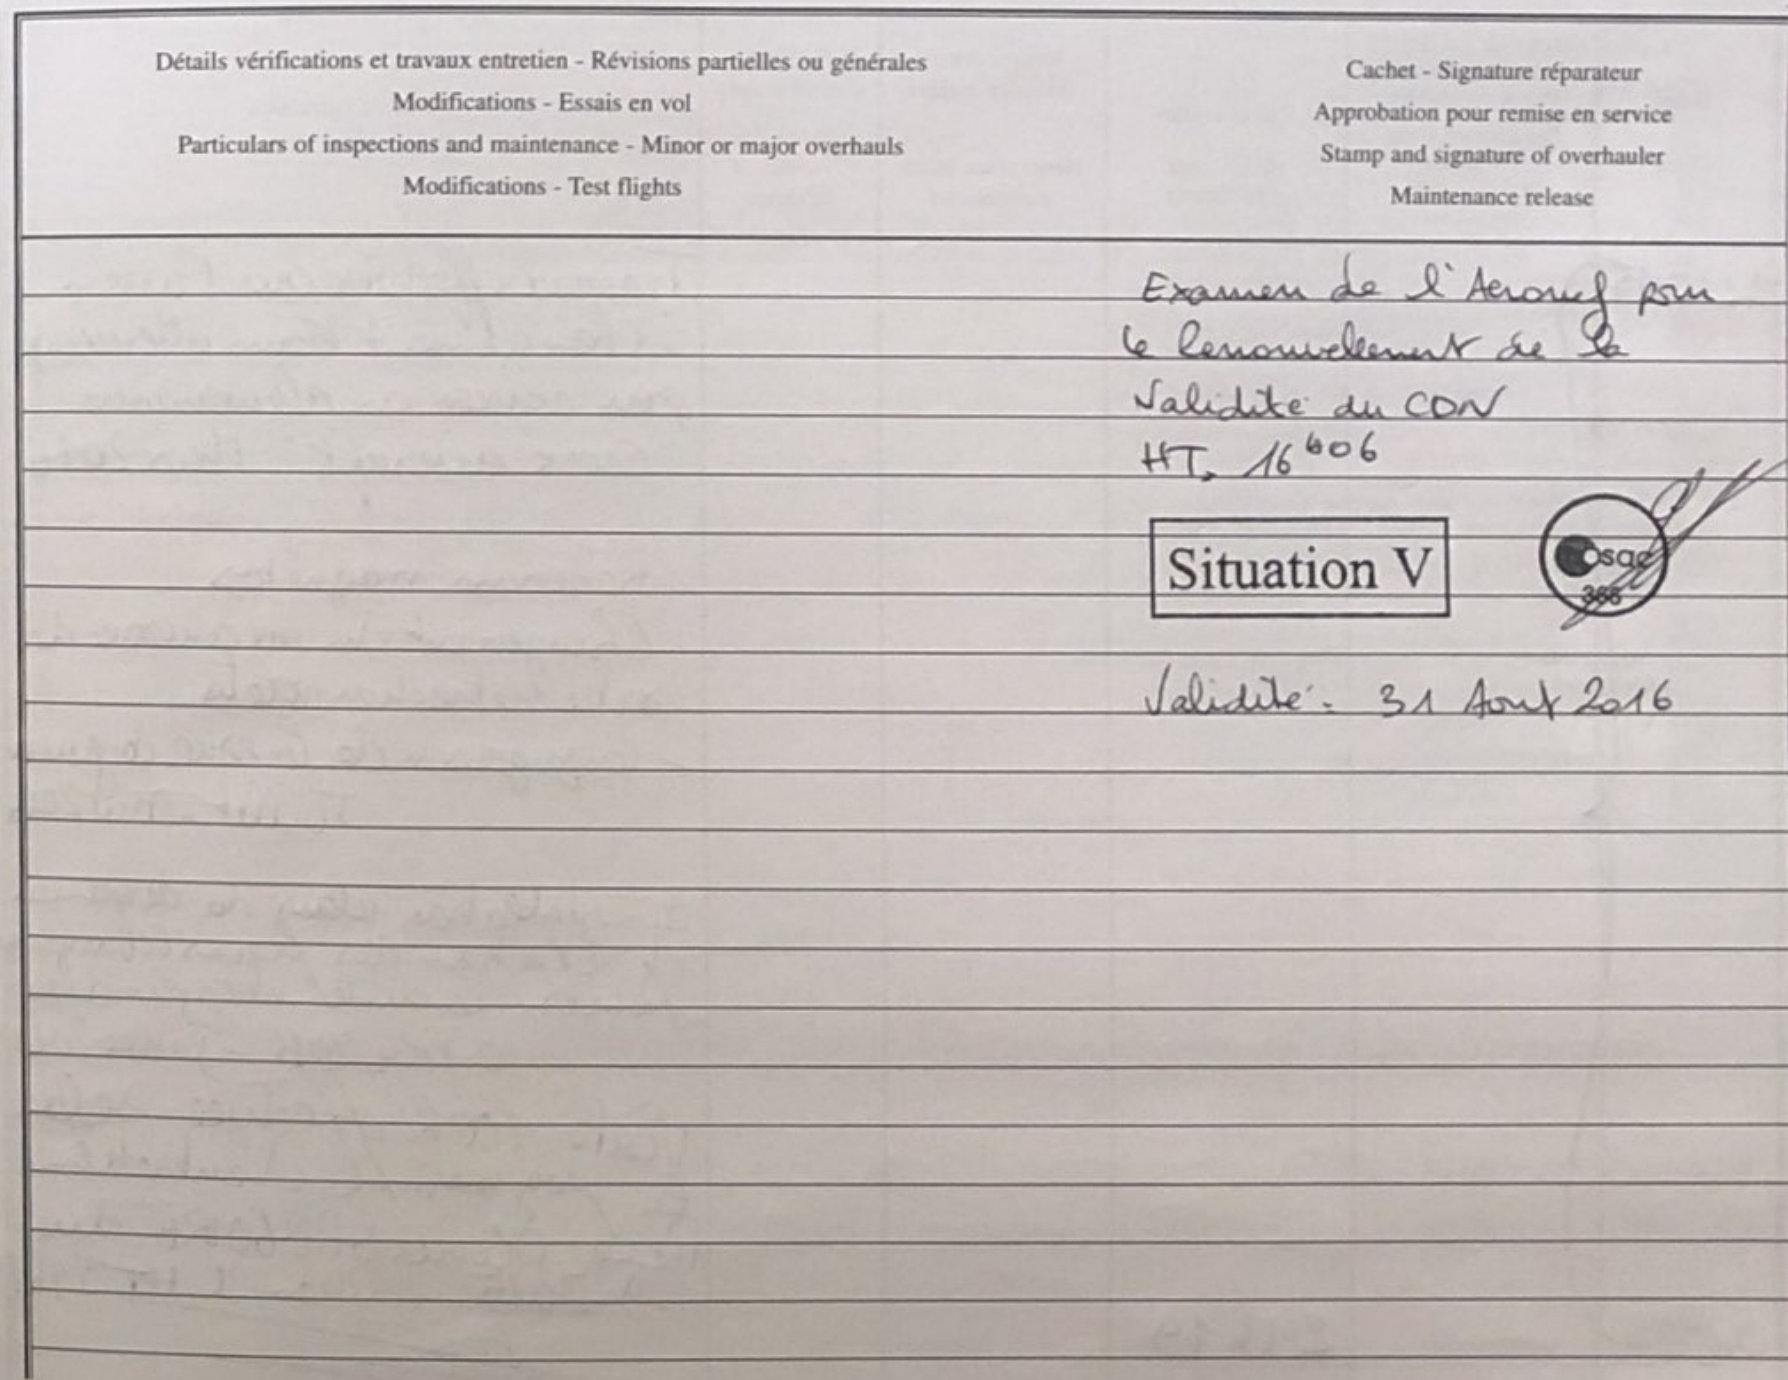 Détails vérifications et travaux entretien - Révisions partielles ou générales
Modifications - Essais en vol
Particulars of inspections and maintenance - Minor or major overhauls
Modifications - Test flights
Cachet - Signature réparateur
Approbation pour remise en service
Stamp and signature of overhauler
Maintenance release
Examen de l'Aeronef pour
le renouvellement de la
Validité du CDN
HT. 16606
Situation V
osac
Validité: 31 Aout 2016